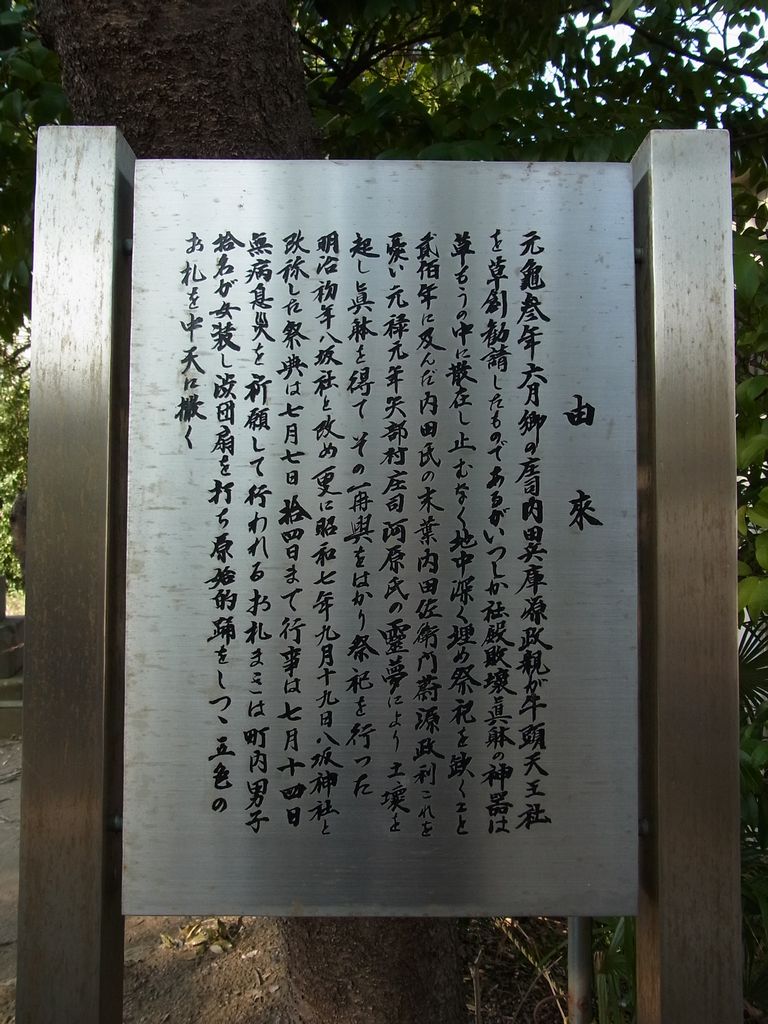 由來
元龜叁年六月郷の庄司内田兵庫源政親が牛頭天王社
を草創勧請したものであるがいつしか社殿敗壊眞躰の神器は
草もうの中に散在し止むなく地中深く埋め祭祀を缺くこと
貳佰年に及んだ内田氏の末葉内田佐衛門蔚源政利これを
憂い元禄元年矢部村庄司河原氏の靈夢により土壌を
起し眞躰を得てその再興をはかり祭祀を行った
明治初年八坂社と改め更に昭和七年九月十九日八坂神社と
改称した祭典は七月七日拾四日まで行事は七月十四日
無病息災を祈願して行われるお札まきは町内男子
拾名が女装し渋団扇を打ち原始的踊をしつゝ五色の
お札を中天に撒く